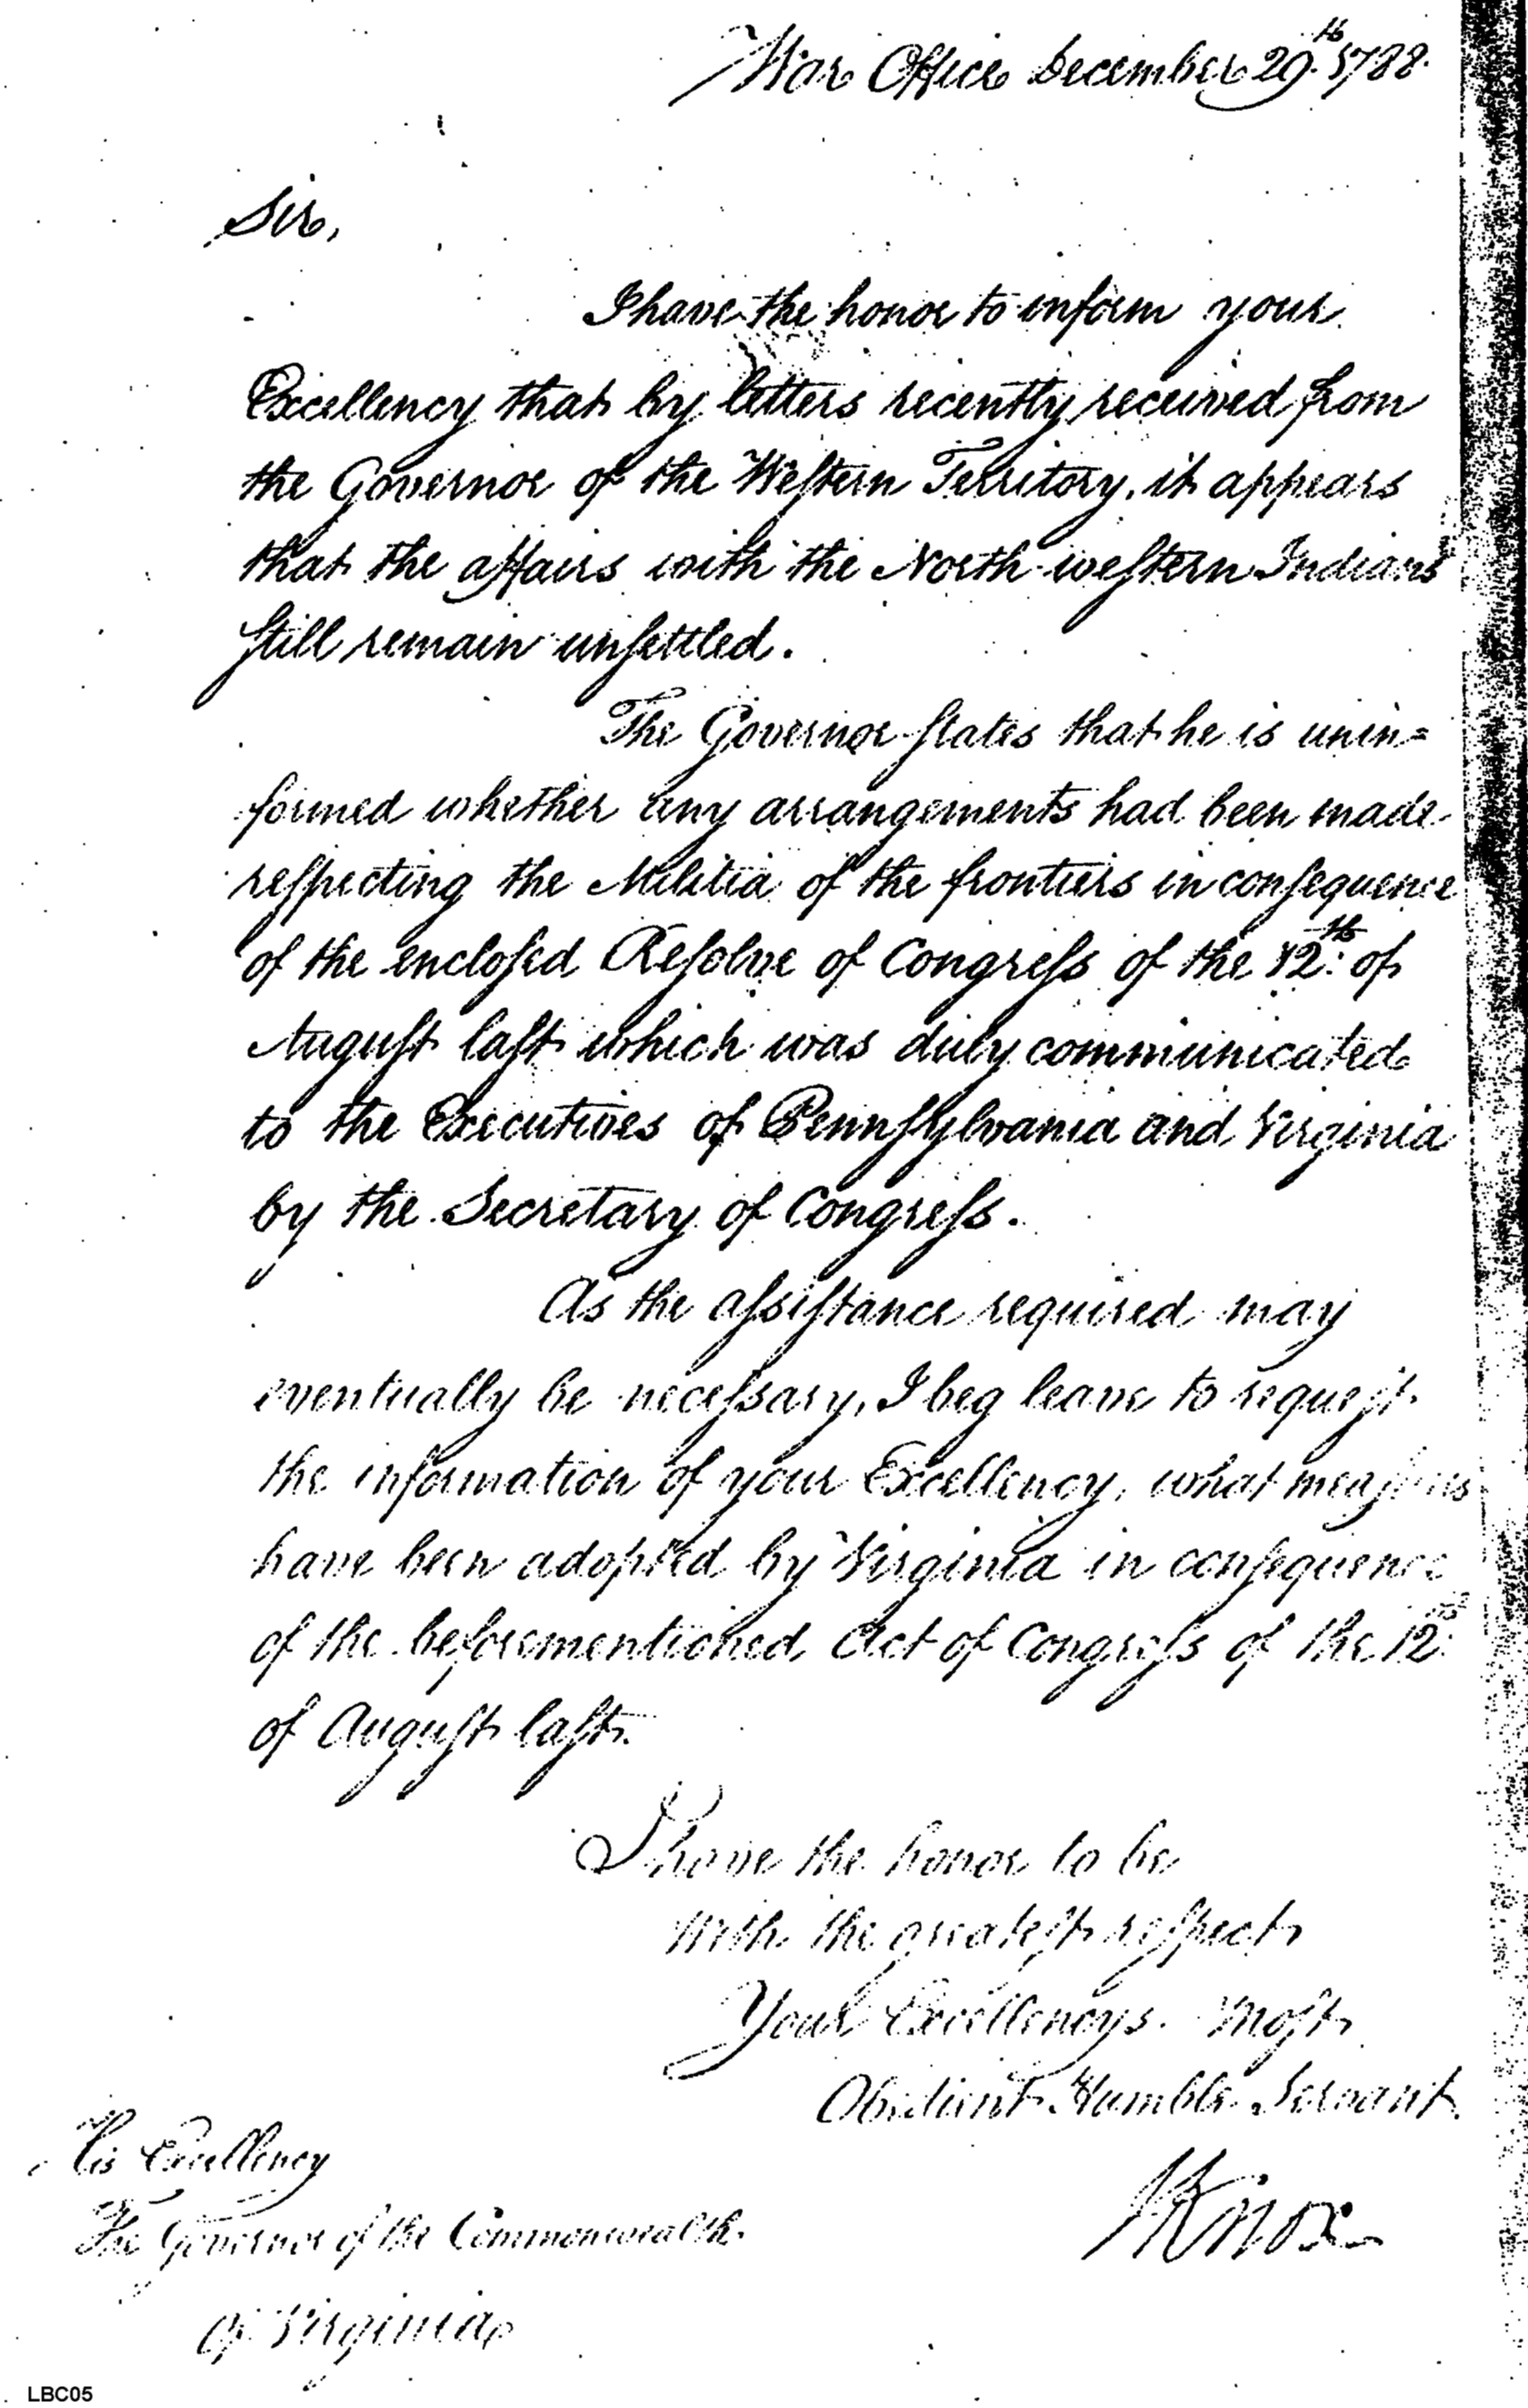 War Office December 29.th 1788.
Sir,
I have the honor to inform your
Excellency that by letters recently received from
the Governor of the Western Territory, it appears
that the affairs with the North-western Indians
still remain unsettled.
The Governor states that he is unin=
formed whether any arrangements had been made
respecting the Militia of the frontiers in consequence
of the enclosed Resolve of Congress of the 12th of
August last which was duly communicated
to the Executives of Pennsylvania and Virginia
by the Secretary of Congress.
As the assistance required may
eventually be necessary, I beg leave to request
the information of your Excellency, what measures
have been adopted by Virginia in consequence
of the beforementioned Act of Congress of the 12th
of August last.
I have the honor to be
With the greatest respect
Your Excellencys. Most
Obedient Humble Servant
HKnox
His Excellency
The Governor of the Commonwealth
Of Virginia
LBC05